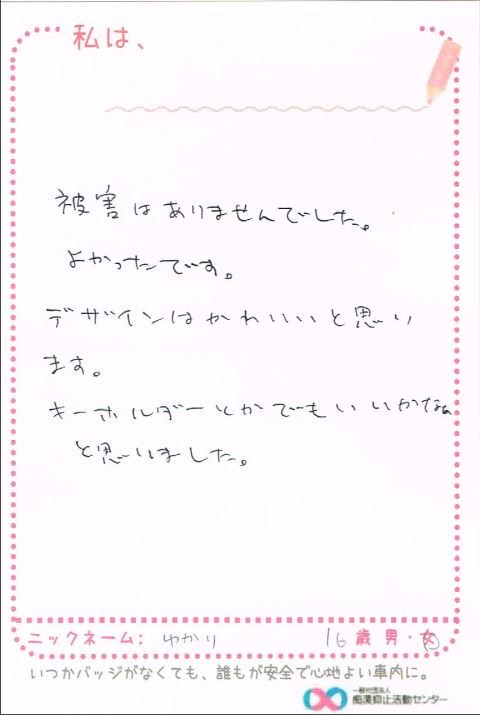 私は、
被害はありませんでした。
よかったです。
デザインはかわいいと思い
ます。
キーホルダーとかでもいいかな。
と思いました。
ニックネーム： ゆかり 16歳 男・女
いつかバッジがなくても、誰もが安全で心地よい車内に。
一般社団法人
痴漢抑止活動センター